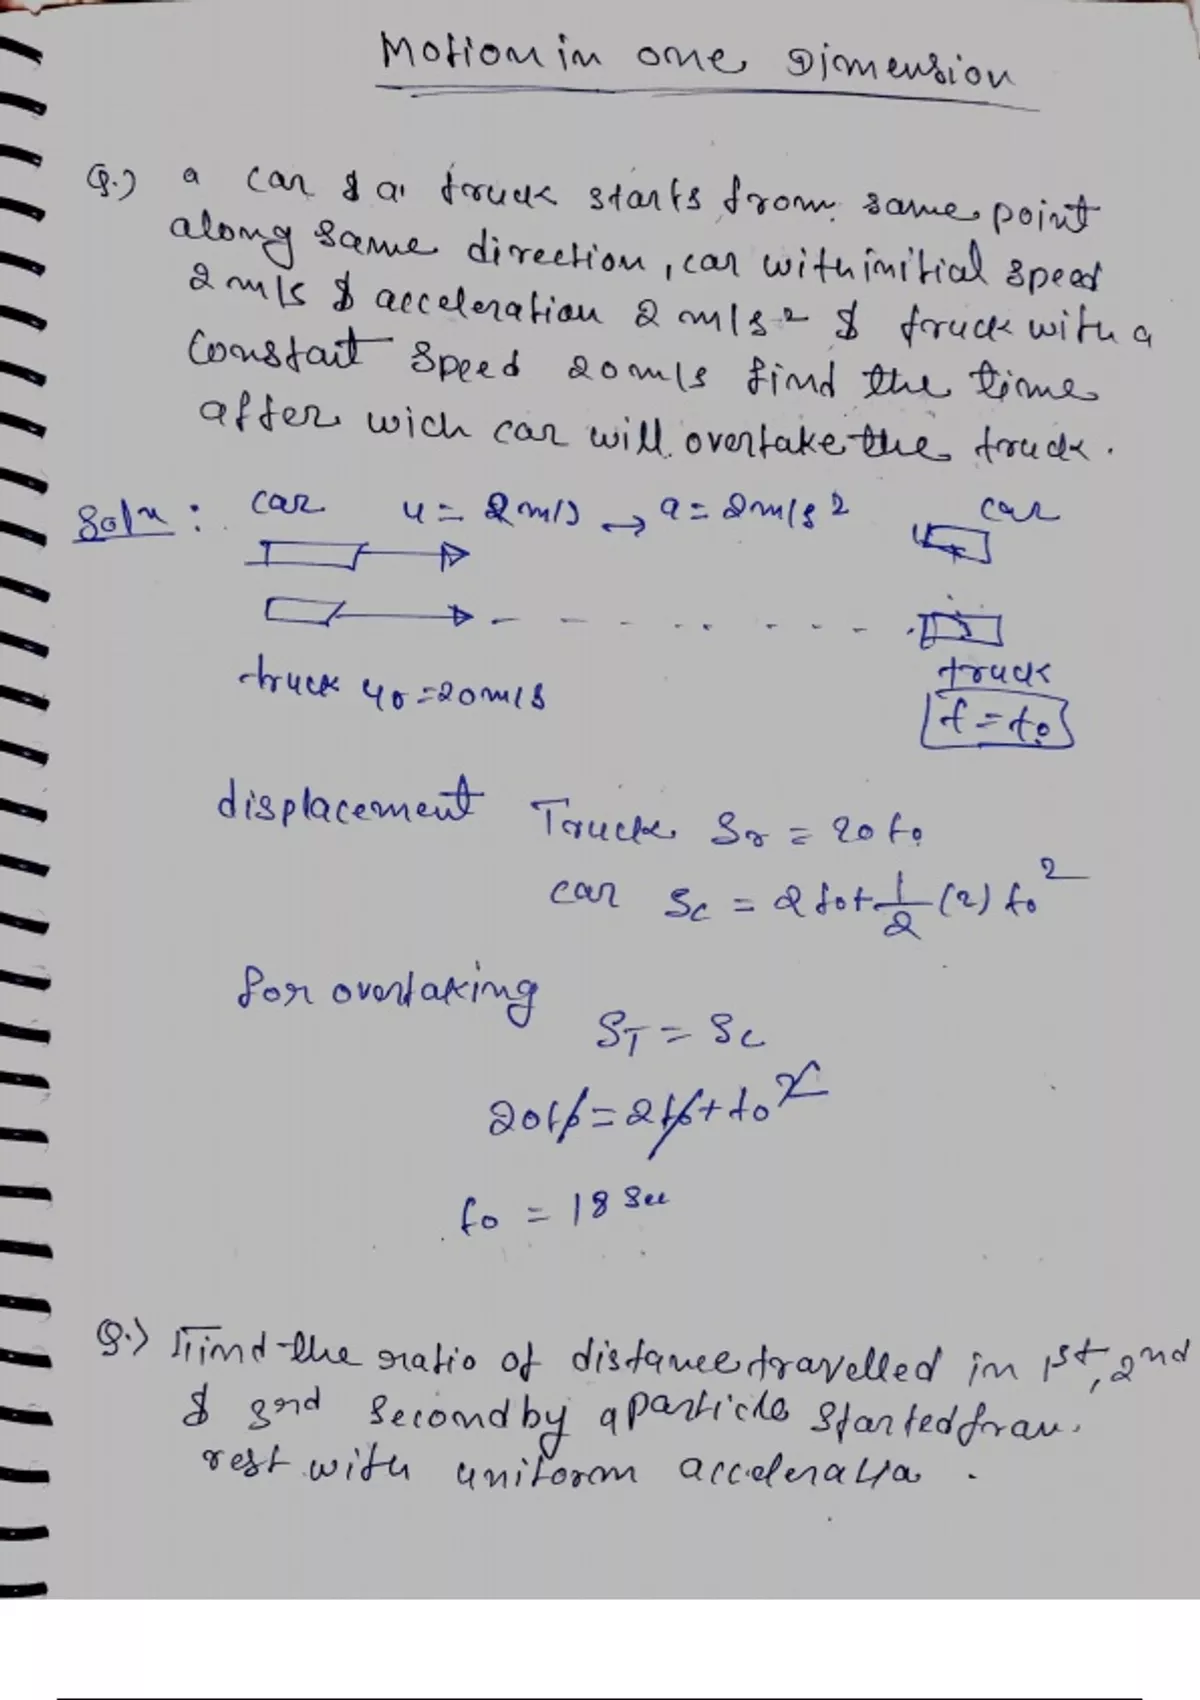 Motion in one Dimension
Q.) a car & a truck starts from same point
along same direction, car with initial speed
2 m/s & acceleration 2 m/s² & truck with a
constait speed 20 m/s find the time
after wich car will overtake the truck.
Soln: car u = 2 m/s → a = 2 m/s² car
truck u0 = 20 m/s truck
t = t0
displacement Truck Sr = 20 t0
car Sc = 2 t0 + 1/2 (2) t0²
for overtaking
ST = Sc
20 t0 = 2 t0 + t0²
t0 = 18 Sec
Q.) Find the ratio of distance travelled in 1st, 2nd
& 3rd second by a particle started from
rest with uniform